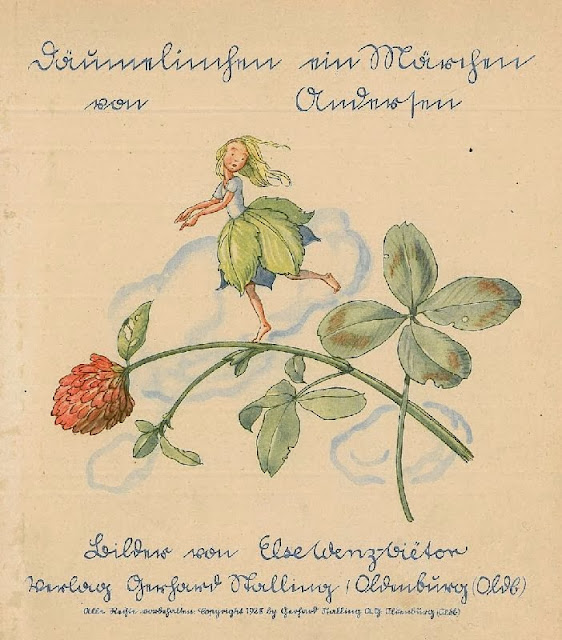 Däumelinchen ein Märchen
von Andersen
Bilder von Else Wenz-Viëtor
Verlag Gerhard Stalling / Oldenburg (Oldb)
Alle Rechte vorbehalten Copyright by Gerhard Stalling A.G. Oldenburg (Oldb)